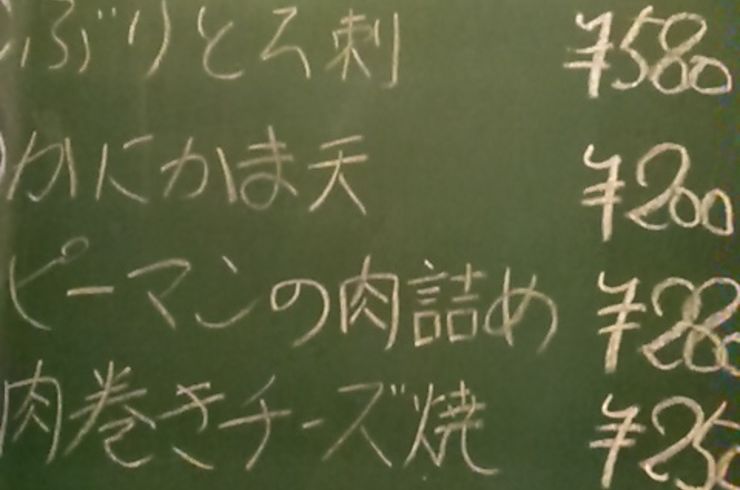 ぶりとろ刺 ¥580
かにかま天 ¥200
ピーマンの肉詰め ¥280
肉巻きチーズ焼 ¥250